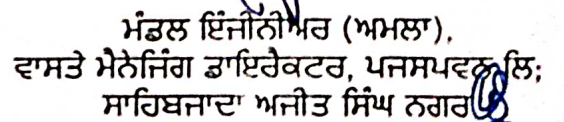 ਮੰਡਲ ਇੰਜੀਨੀਅਰ (ਅਮਲਾ),
ਵਾਸਤੇ ਮੈਨੇਜਿੰਗ ਡਾਇਰੈਕਟਰ, ਪਜਸਪਵਲ ਲਿ;
ਸਾਹਿਬਜਾਦਾ ਅਜੀਤ ਸਿੰਘ ਨਗਰ